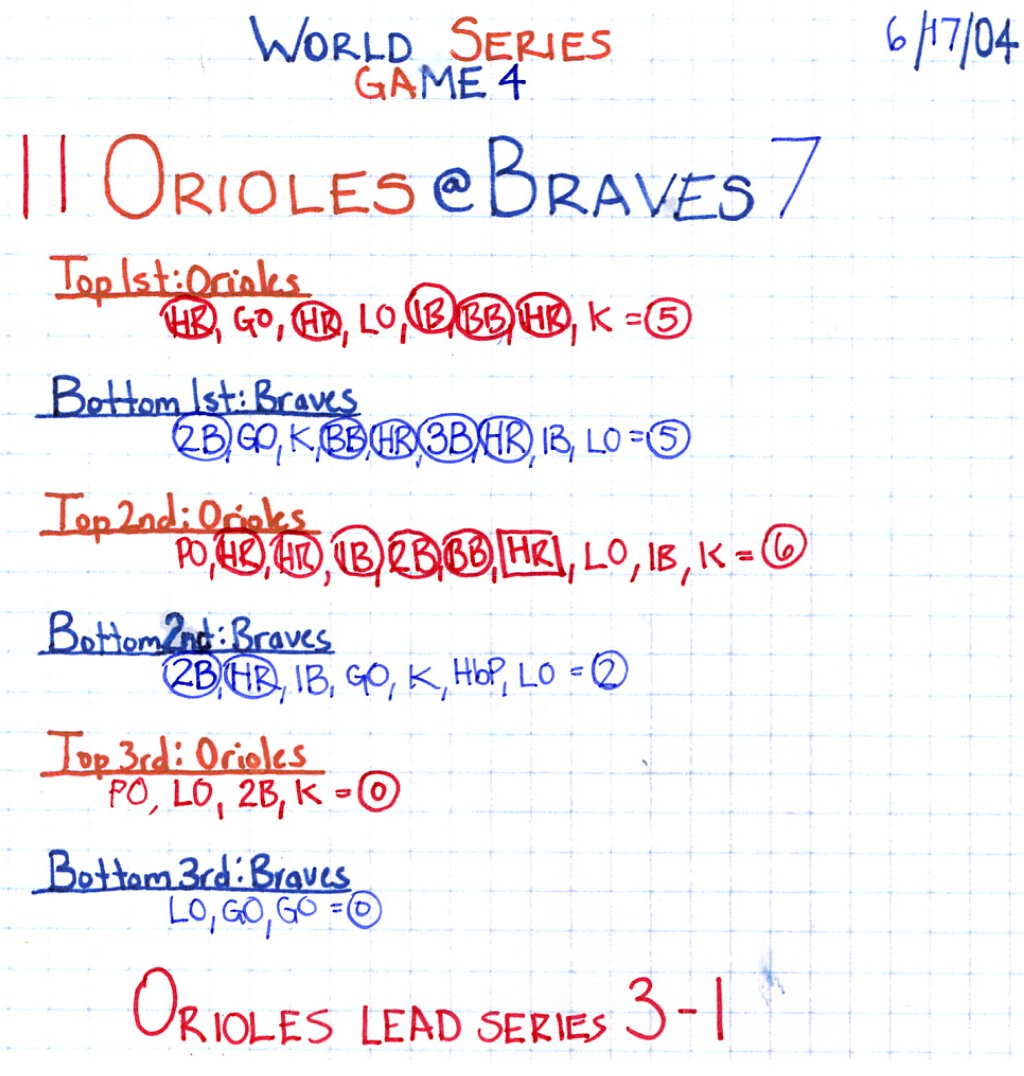 WORLD SERIES 6/17/04
GAME 4
11 ORIOLES @ BRAVES 7
Top 1st: Orioles
HR, GO, HR, LO, 1B, BB, HR, K = 5
Bottom 1st: Braves
2B, GO, K, BB, HR, 3B, HR, 1B, LO = 5
Top 2nd: Orioles
PO, HR, HR, 1B, 2B, BB, HR, LO, 1B, K = 6
Bottom 2nd: Braves
2B, HR, 1B, GO, K, HbP, LO = 2
Top 3rd: Orioles
PO, LO, 2B, K = 0
Bottom 3rd: Braves
LO, GO, GO = 0
ORIOLES LEAD SERIES 3-1